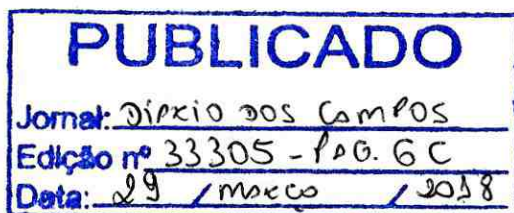 PUBLICADO
Jornal: DIÁRIO DOS CAMPOS
Edição nº 33305 - PAG. 6 C
Data: 29 / MARÇO / 2018